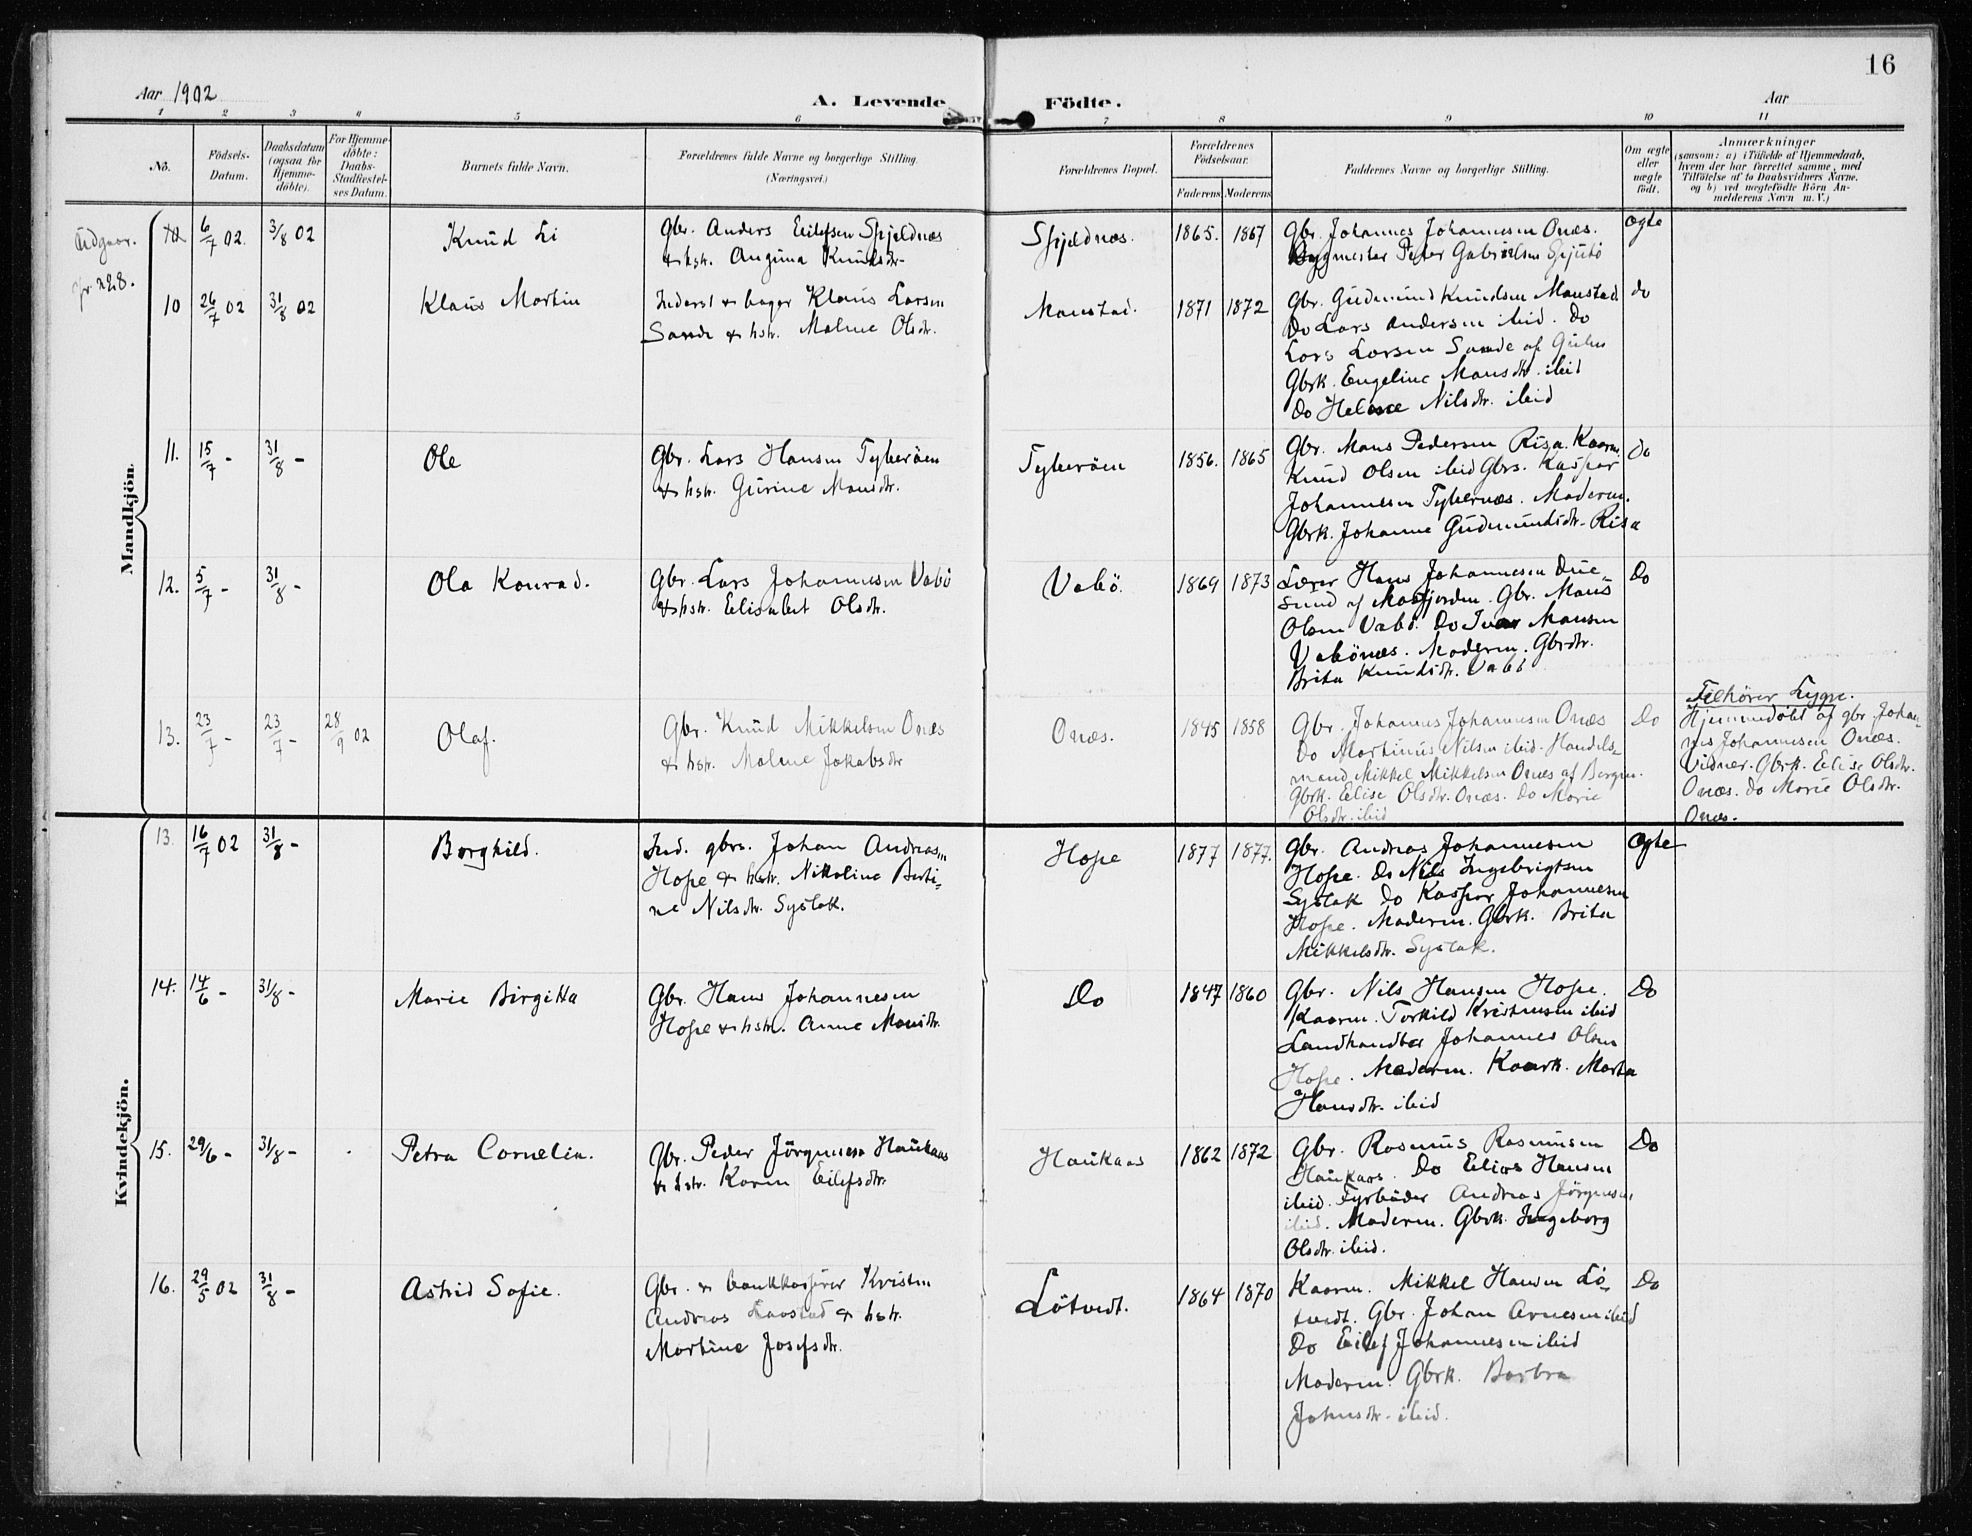 16
Aar 1902
A. Levende
Födte.
Aar
1 2 3 4 5 6 7 8 9 10 11
No.
Födsels-
Datum.
Daabsdatum
(ogsaa for
Hjemme-
døbte).
For Hjemme-
døbte:
Daabs-
Stadfæstel-
ses Datum.
Barnets fulde Navn.
Forældrenes fulde Navne og borgerlige Stilling.
(Næringsvei.)
Forældrenes Bopæl.
Forældrenes
Födselsaar.
Faderens Moderens
Faddernes Navne og borgerlige Stilling.
Om ægte
eller
uægte
født.
Anmærkninger
(saasom: a) i Tilfælde af Hjemmedaab,
hvem der har forrettet samme, med
Tilföielse af to Daabsvidners Navne,
og b) ved uægtefödte Börn An-
melderens Navn m. V.)
Mandkjön.
Udgaar.
6/7 02. 3/8 02
Knud Li
Gbr. Anders Eilefsen Spjeldnæs
& hstr. Anguna Knudsdr.
Spjeldnæs.
1865. 1867
Gbr. Johannes Johannesen Onæs.
Bygmester Peter Gabrielsen Spjutö
Ægte
10 26/7 02 31/8 02
Klaus Martin
Inderst & bager Klaus Larsen
Sande & hstr. Malene Olsdr.
Manstad.
1871 1872
Gbr. Gudmund Knudsen Manstad
Do Lars Andersen ibid. Do
Lars Larsen Sande af Gulen
Gbrk. Engeline Mansdtr. ibid
Do Helene Nilsdtr. ibid
do
11. 15/7 - 31/8 -
Ole
Gbr. Lars Hansen Tyberöen
& hstr. Gurine Monsdtr.
Tyberöen
1856. 1865
Gbr. Mons Pedersen Risa. Kaarm.
Knud Olsen ibid Gbrs. Kaspar
Johannesen Tybernæs. Moderen.
Gbrk. Johanne Gudmundsdtr. Risa
Do
12. 5/7 - 31/8 -
Ola Konrad.
Gbr. Lars Johannesen Vabö
& hstr. Elisabet Olsdtr.
Vabö.
1869 1873
Lærer Hans Johannesen Due-
sund af Masfjorden. Gbr. Mons
Olsen Vabö. Do Ivar Monsen
Vabönæs. Moderen. Gbrdtr.
Brita Knudsdtr. Vabö
Do
13. 23/7 - 23/7 - 28/9 02
Olaf.
Gbr. Knud Mikkelsen Onæs
& hstr. Malene Jakobsdtr
Onæs.
1845 1858
Gbr. Johannes Johannesen Onæs
Do Martinus Nilsen ibid. Handels-
mand Mikkel Mikkelsen Onæs af Bergen.
Gbrk. Elise Olsdtr. Onæs. Do Marie
Olsdtr. ibid
Do
Tilhörer Lygre.
Hjemmedöbt af gbr. Johan-
nes Johannesen Onæs.
Vidner. Gbrk. Elise Olsdtr.
Onæs. Do Marie Olsdtr.
Onæs.
Kvindekjön.
13. 16/7 02 31/8 -
Borghild.
Ind. gbrs. Johan Andreas...
Hope & hstr. Nikoline Berti-
ne Nilsdtr. Syslak.
Hope
1877 1877.
Gbr. Andreas Johannesen
Hope. Do Nils Ingebrigtsen
Syslak Do Kaspar Johannesen
Hope. Moderen. Gbrk. Brita
Mikkelsdtr. Syslak.
Ægte
14. 14/6 - 31/8 -
Marie Birgitta
Gbr. Hans Johannesen
Hope & hstr. Anne Monsdtr.
Do
1847 1860
Gbr. Nils Hansen Hope.
Kaarm. Torkild Kristensen ibid
Landhandler Johannes Olsen
Hope. Moderen. Kaark. Marta
Hansdtr. ibid
Do
15. 29/6 - 31/8 -
Petra Cornelia.
Gbr. Peder Jörgensen Haukaas
& hstr. Karen Eilefsdtr.
Haukaas
1862 1872
Gbr. Rasmus Rasmusen
Haukaas. Do Elias Hansen
ibid. Fyrböder Andreas Jörgensen
ibid. Moderen. Gbrk. Ingeborg
Olsdtr. ibid.
Do
16. 29/5 02 31/8 -
Astrid Sofie.
Gbr. & bankkasserer Kristen
Andreas Laastad & hstr.
Martine Josefsdtr.
Lötvedt.
1864 1870
Kaarm. Mikkel Hansen Lö-
tvedt. Gbr. Johan Arnesen ibid
Do Eilef Johannesen ibid
Moderen. Gbrk. Barbra
Johnsdtr. ibid.
Do